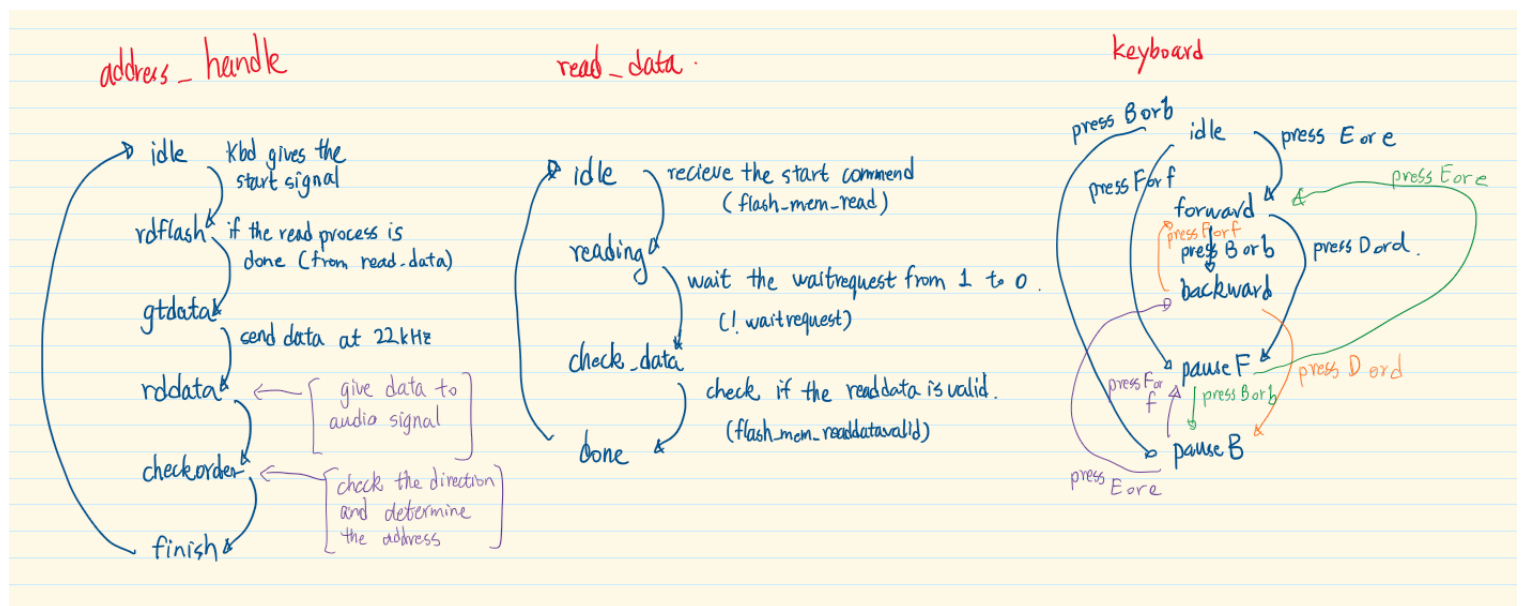 address_handle
idle
kbd gives the
start signal
rdflash
if the read process is
done (from read_data)
gtdata
send data at 22kHz
rddata
give data to
audio signal
checkorder
check the direction
and determine
the address
finish
read_data.
idle
recieve the start commend
(flash_mem_read)
reading
wait the waitrequest from 1 to 0.
(! waitrequest)
check_data
check if the readdata is valid.
(flash_mem_readdatavalid)
done
keyboard
press B or b
idle
press E or e
press F or f
press E or e
forward
press F or f
press B or b
press D or d.
backward
pause F
press D or d
press F or
f
press B or b
pause B
press E or e